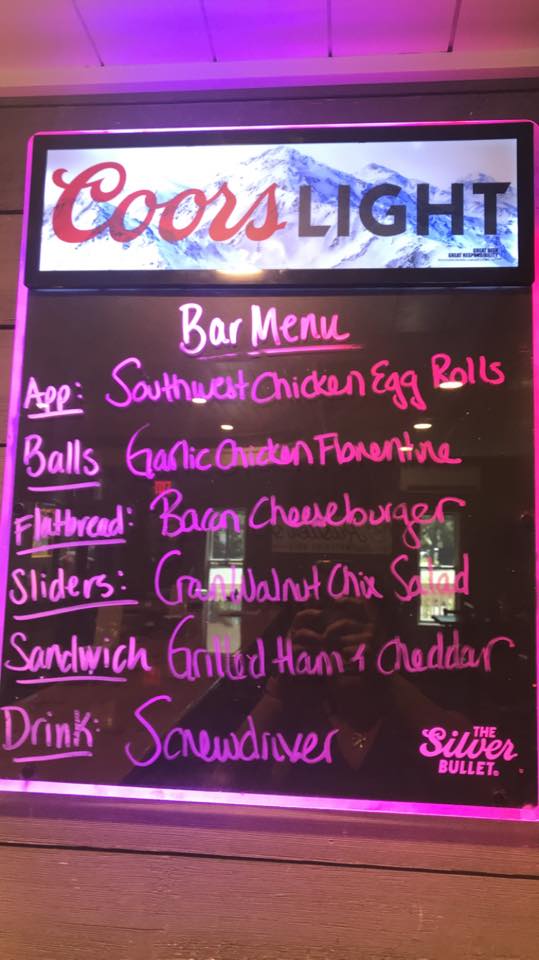 Coors LIGHT
GREAT BEER
GREAT RESPONSIBILITY
Bar Menu
App: Southwest Chicken Egg Rolls
Balls Garlic Chicken Florentine
Flatbread: Bacon Cheeseburger
Sliders: CranWalnut Chix Salad
Sandwich Grilled Ham & Cheddar
Drink: Screwdriver
THE
Silver
BULLET.